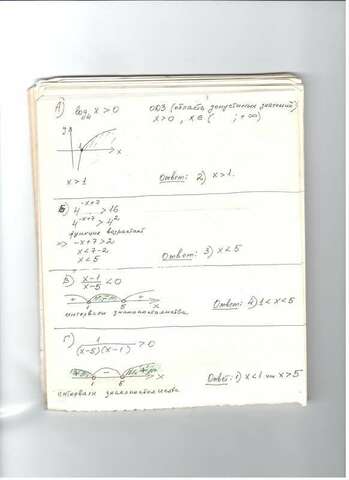 А) log x > 0 ОДЗ (область допустимых значений)
x>0 , x∈( ; +∞)
y
1 x
x>1 Ответ: 2) x>1.
Б) 4^(-x+7) > 16
4^(-x+7) > 4^2
функция возрастает
=> -x+7>2
x<7-2
x<5 Ответ: 3) x<5
В) (x-1)/(x-5) < 0
+ - +
1 5 x
интервалы знакопостоянства Ответ: 4) 1<x<5
Г) 1/((x-5)(x-1)) > 0
-
1 5 x
интервалы знакопостоянства Ответ: 1) x<1 или x>5